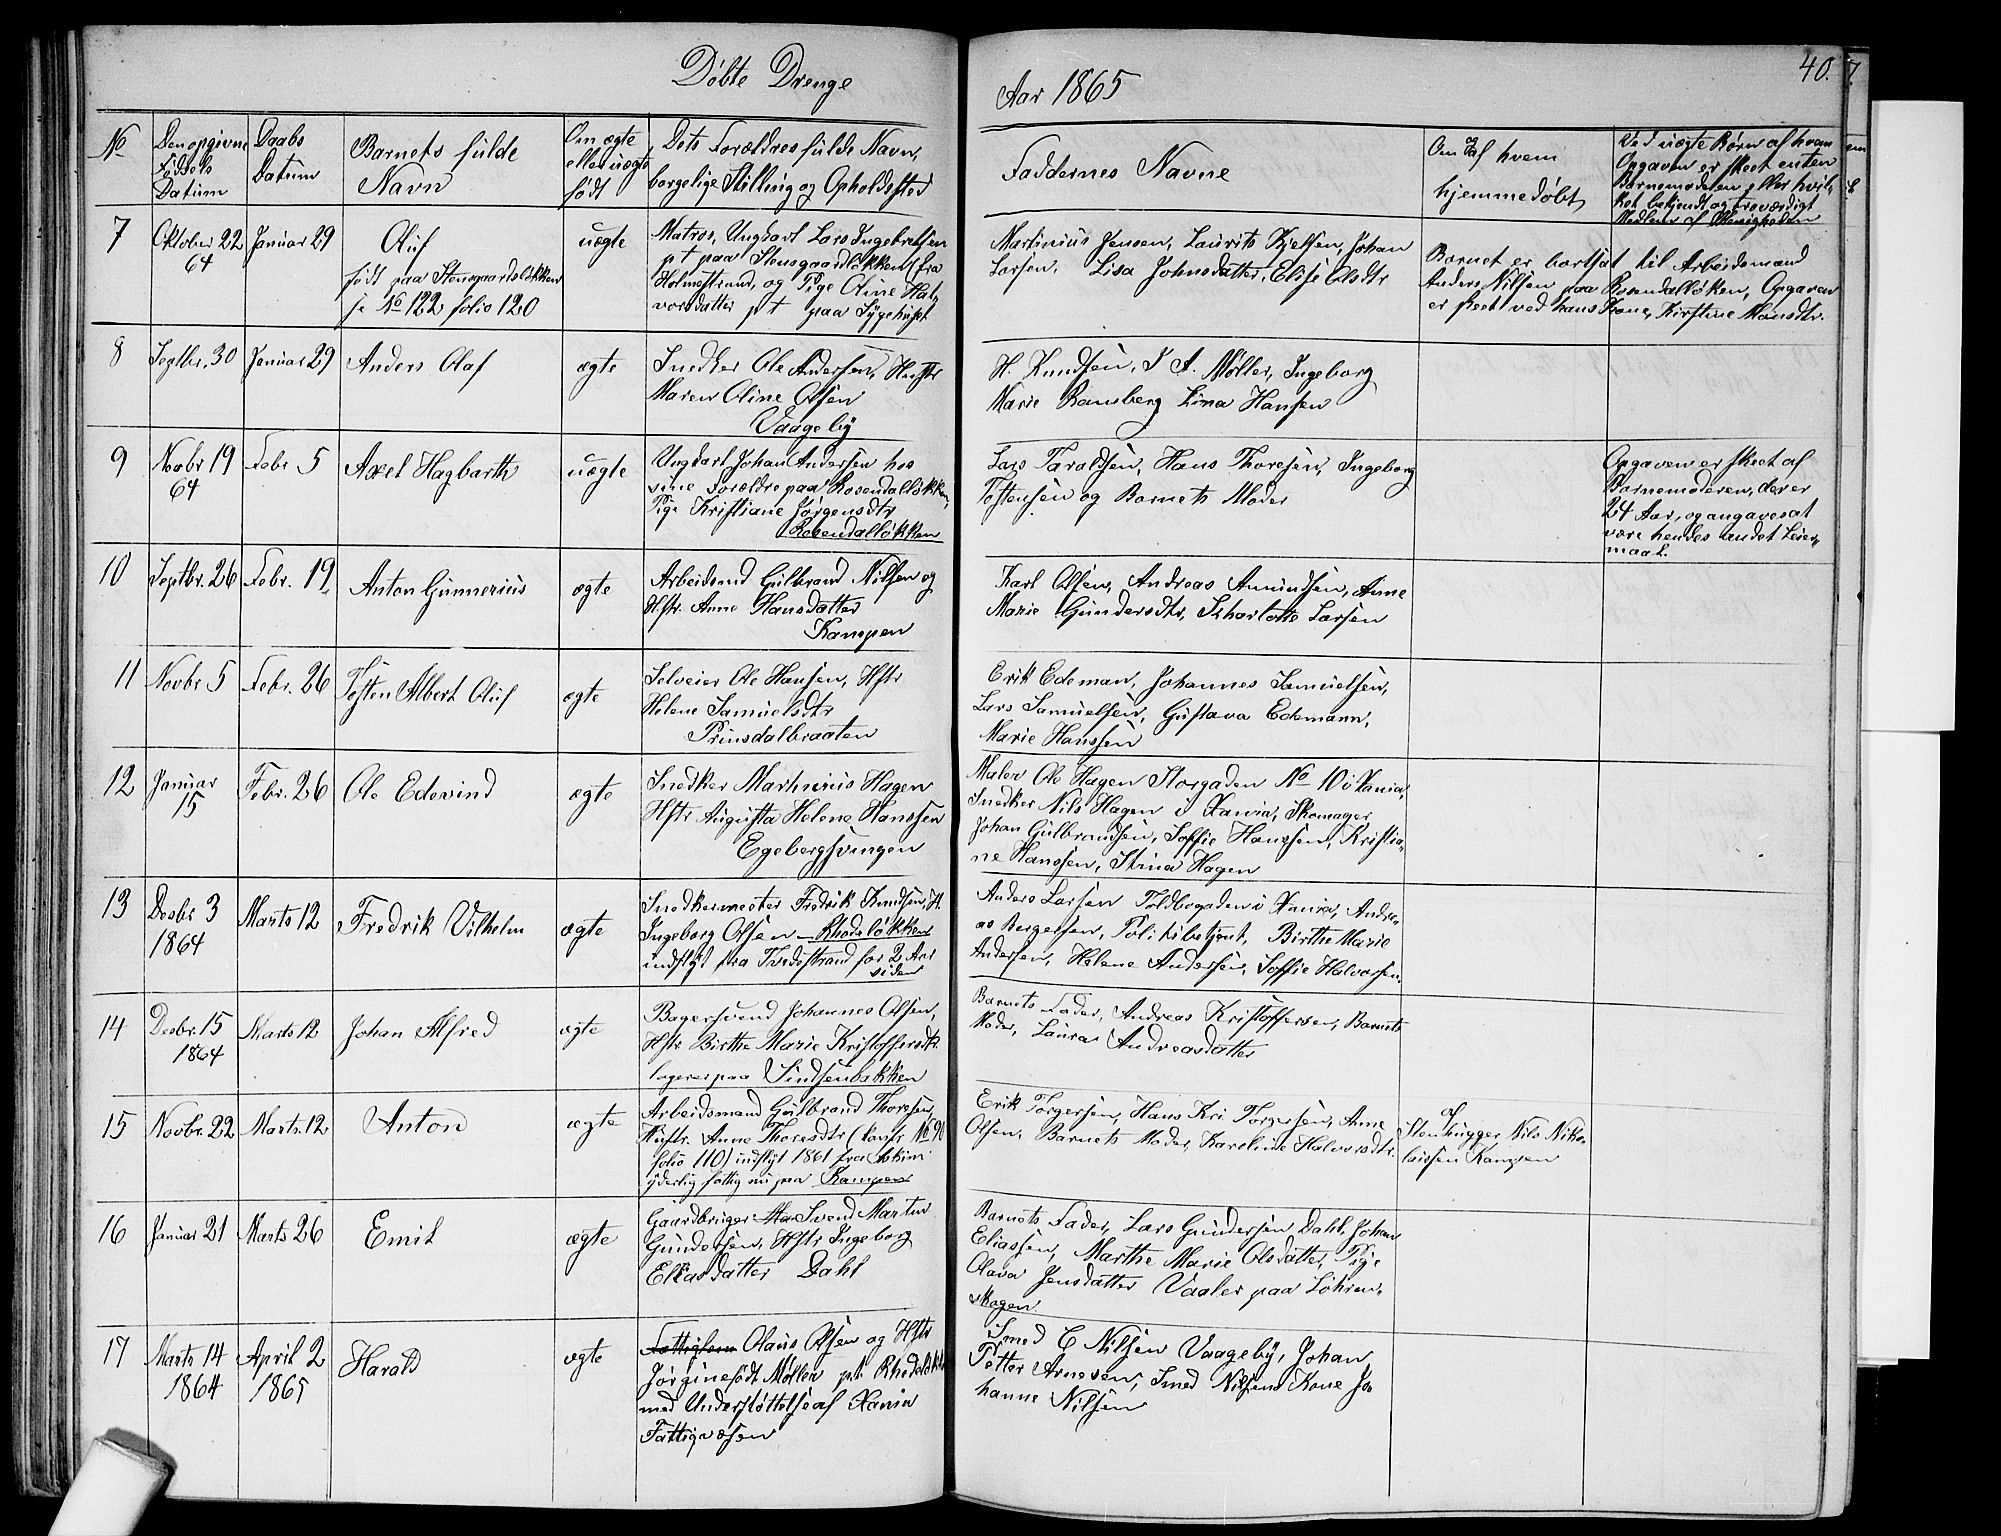 Døbte Drenge
Aar 1865
40.
No
Den opgivne
Fødsels
Datum
Daabs
Datum
Barnets fulde
Navn
Om ægte
eller uægte
født
Dets Forældres fulde Navn,
borgelige Stilling og Opholdssted
Faddernes Navne
Om & af hvem
hjemmedøbt
Ved uægte Børn af hvem
Opgaven er skeet enten
Barnemoderen eller hvil-
ket bekjendt og troværdigt
Medlem af Menigheden
7
Oktober 22
64
Januar 29
Oluf
født paa Stensgaardsløkken
je No 122 folio 120
uægte
Matros, Ungkarl Lars Ingebretsen
pt paa Stensgaardløkken, fra
Holmestrand, og Pige Oline Hal-
vorsdatter pt paa Sygehuset
Martinius Jensen, Laurits Kjelsen, Johan
Larsen, Lisa Johnsdatter, Elise Olsdtr
Barnet er bortsat til Arbeidsmand
Anders Nilsen paa Rosendalløken, Opgaven
er skeet ved hans Kone, Kirstine Mansdtr.
8
Septbr. 30
Januar 29
Anders Olaf
ægte
Snedker Ole Andersen, Hustr
Maren Oline Olsen
Vaageby
H. Knudsen, I A. Møller, Ingeborg
Marie Ramberg Lina Hansen
9
Novbr 19
64
Febr 5
Axel Hagbarth
uægte
Ungkarl Johan Andersen hos
sine Forældre paa Rosendalløkken,
Pige Kristiane Jørgensdtr
Rosendalløkken
Lars Taraldsen, Hans Thoresen, Ingeborg
Tostensen og Barnets Moder
Opgaven er skeet af
Barnemoderen, der er
24 Aar, og angaves at
være hendes andet Leier-
maal.
10
Septbr. 26
Febr. 19
Anton Gunnerius
ægte
Arbeidsmd Gulbrand Nilsen og
Hstr. Anne Hansdatter
Kampen
Karl Olsen, Andreas Amundsen, Anne
Marie Gundersdtr, Scharlotte Larsen
11
Novbr 5
Febr. 26
Tosten Albert Oluf
ægte
Selveier Ole Hansen, Hstr
Helene Samuelsdtr
Prinsdalbraaten
Erik Edeman, Johannes Samuelsen,
Lars Samuelsen, Gustava Edemann,
Marie Hanssen
12
Januar
15
Febr. 26
Ole Edevind
ægte
Snedker Marthinius Hagen
Hstr Augusta Helene Hanssen
Egebergsvingen
Maler Ole Hagen Storgaden No 10 i Xania,
Snedker Nils Hagen i Xania, Skomager
Johan Gulbrandsen, Soffie Hanssen, Kristia-
ne Hanssen, Stina Hagen
13
Decbr 3
1864
Marts 12
Fredrik Vilhelm
ægte
Snedkermester Fredrik Knudsen, H.
Ingeborg Olsen - Rhodeløkken
indflyt fra Tvedestrand for 2 Aar
siden
Anders Larsen Toldbogaden i Xania, Andre-
as Bergersen, Politibetjent, Birthe Marie
Andersen, Helene Andersen, Soffie Halvorsen.
14
Decbr. 15
1864
Marts 12
Johan Alfred
ægte
Bagersvend Johannes Olsen,
Hstr. Birthe Marie Kristoffersdtr.
logerer paa Sindsenbakken
Barnets Fader, Andreas Kristoffersen, Barnets
Moder, Laura Andreasdatter
15
Novbr. 22
Marts. 12
Anton
ægte
Arbeidsmand Gulbrand Thoresen,
Hustr. Anne Thoresdtr (konfr No 90
folio 110) indflyt 1861 fra Askim
yderlig fattig nu paa Kampen
Erik Torgersen, Hans Kri Torgersen, Anne
Olsen, Barnets Moder, Karoline Halvorsdtr.
af
Stenhugger Nils Niko-
laisen Kampen
16
Januar 21
Marts 26
Emil
ægte
Gaardbruger Svend Martin
Gundersen, Hstr Ingeborg
Eliasdatter Dahl
Barnets Fader, Lars Gundersen Dahl, Johan
Eliassen, Marthe Marie Olsdatter, Pige
Olava Jensdatter Vaaler paa Lohren-
skogen
17
Marts 14
1864
April 2
1865
Harald
ægte
Fattiglem Olaus Olsen og Hstr
Jørgine født Møller pt Rhodeløkk
med Understøttelse af Xania
Fattigvæsen
Smed C Nilsen Vaageby, Johan
Petter Arnesen, Smed Nilsens Kone Jo
hanne Nilsen